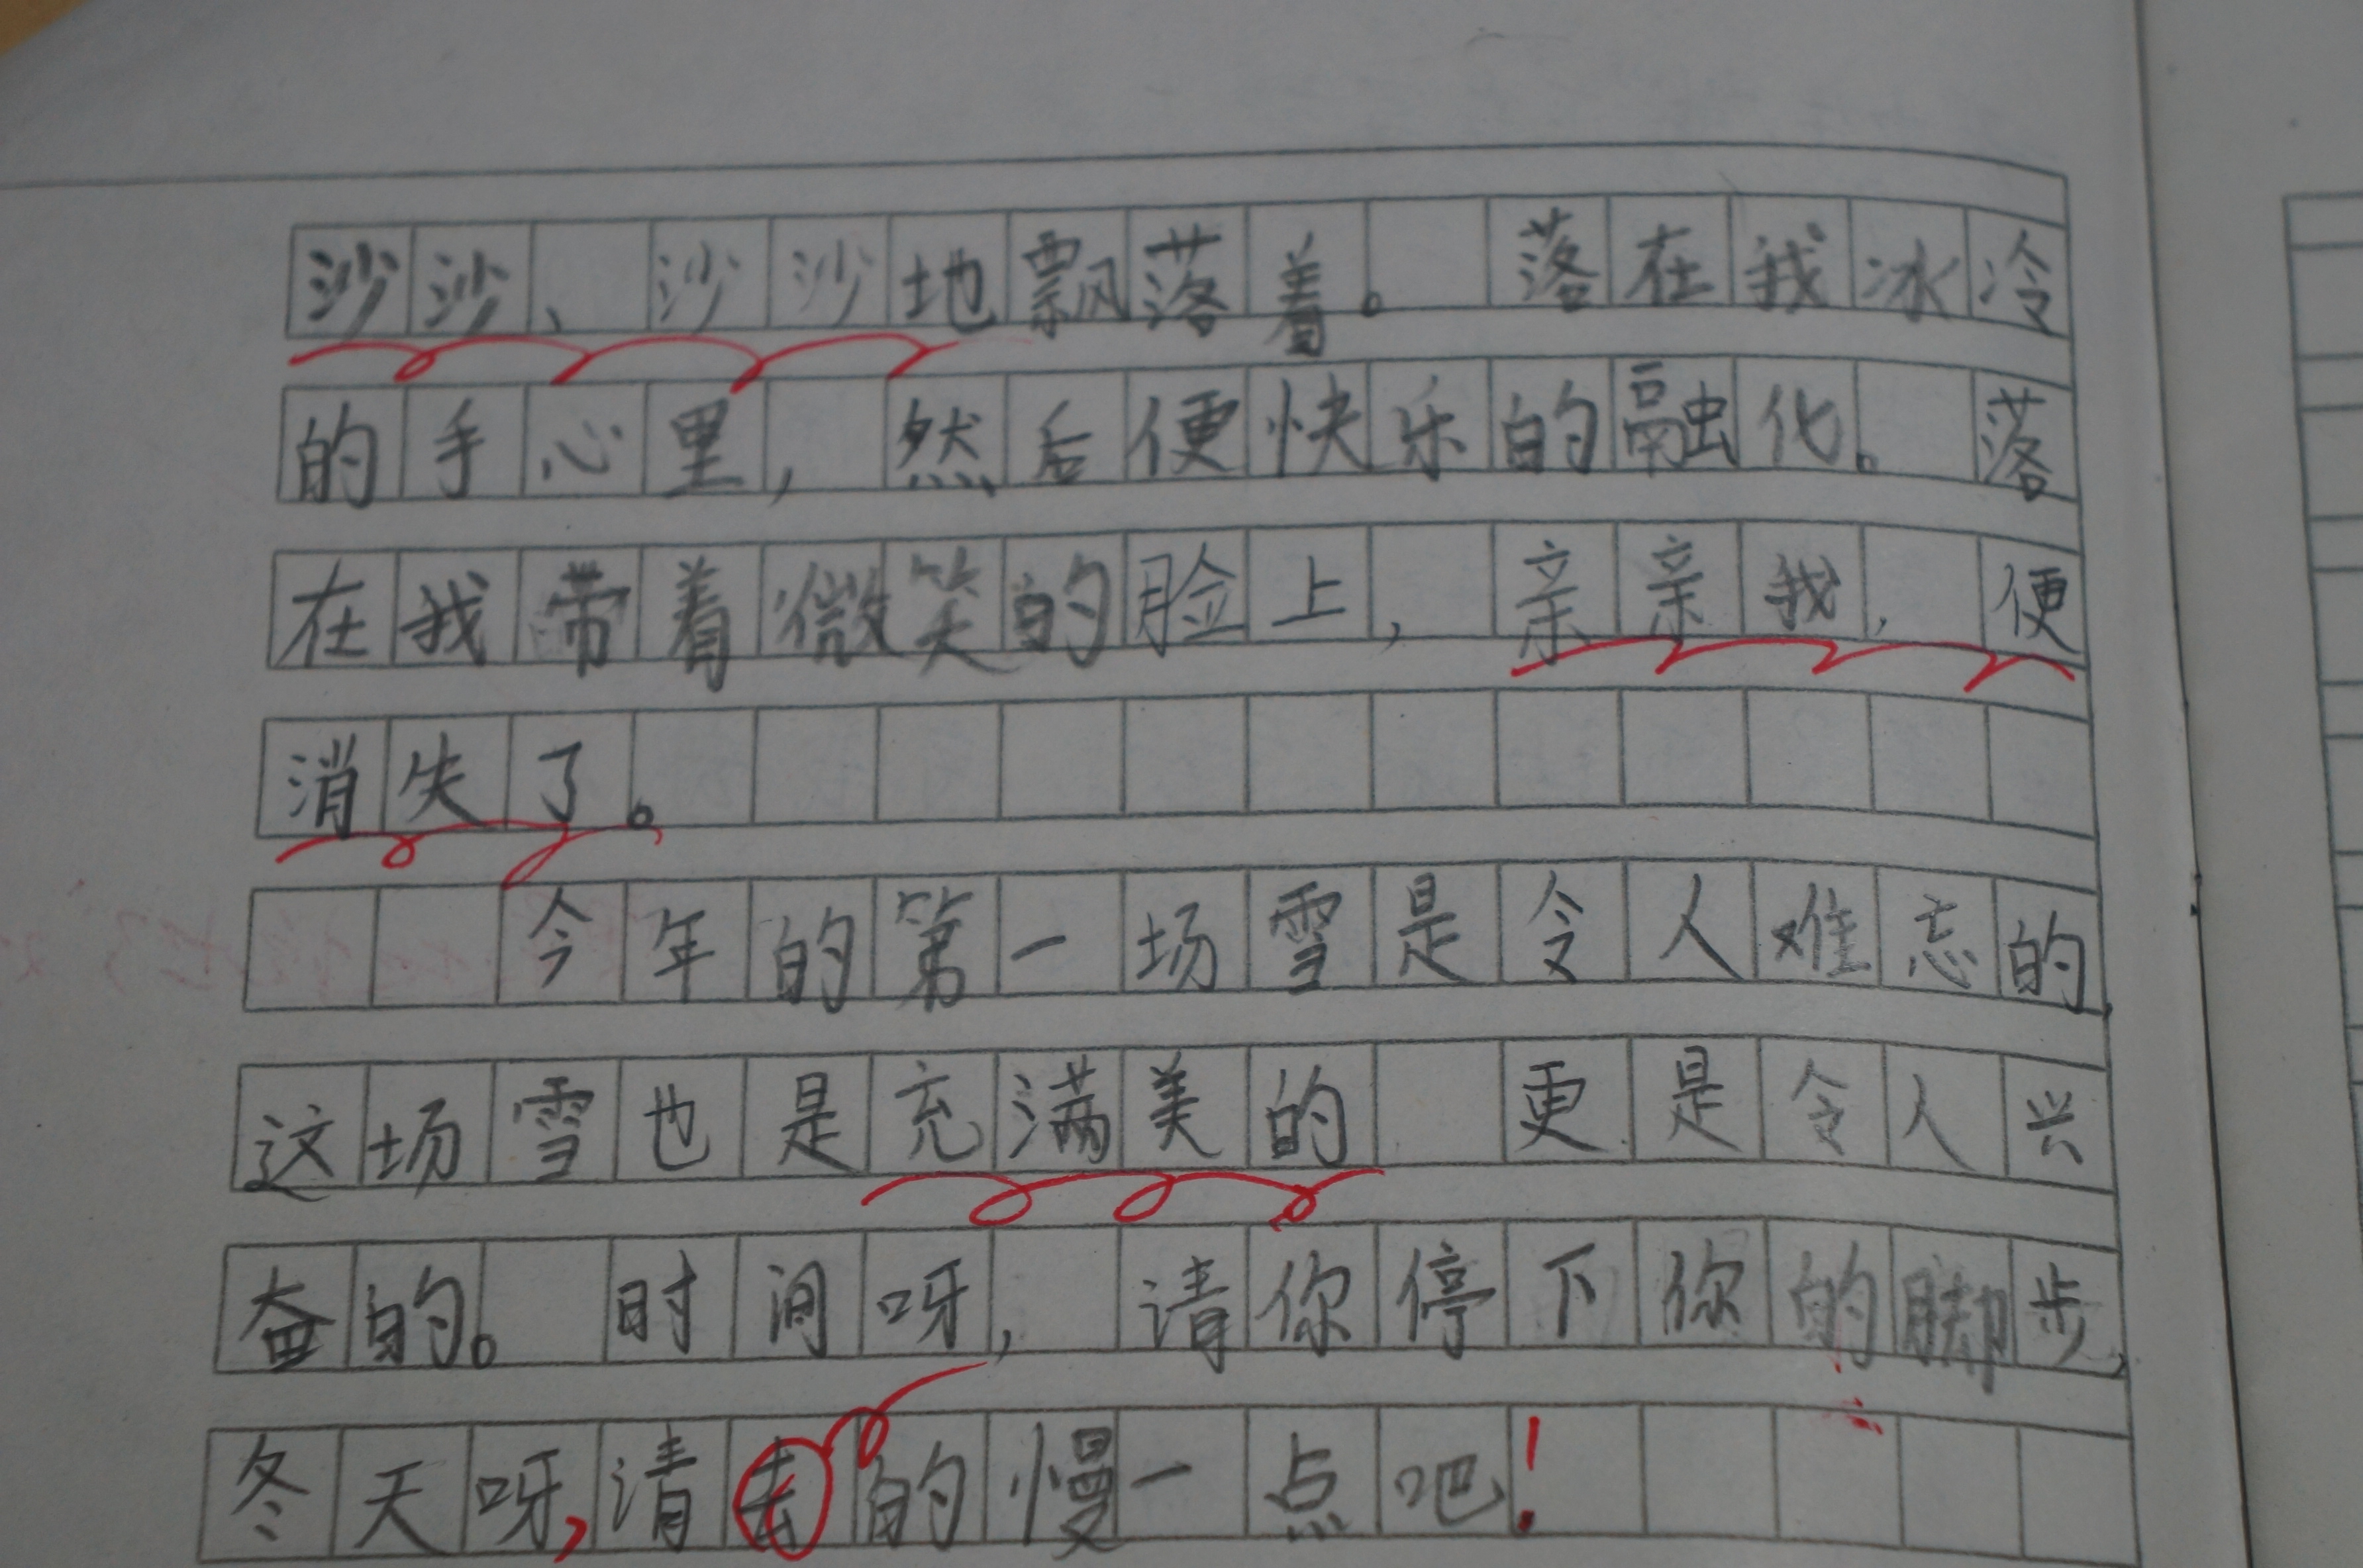 沙沙、沙沙地飘落着。落在我冰冷
的手心里，然后便快乐的融化。落
在我带着微笑的脸上，亲亲我，便
消失了。
今年的第一场雪是令人难忘的，
这场雪也是充满美的 更是令人兴
奋的。时间呀，请你停下你的脚步，
冬天呀，请去的慢一点吧！